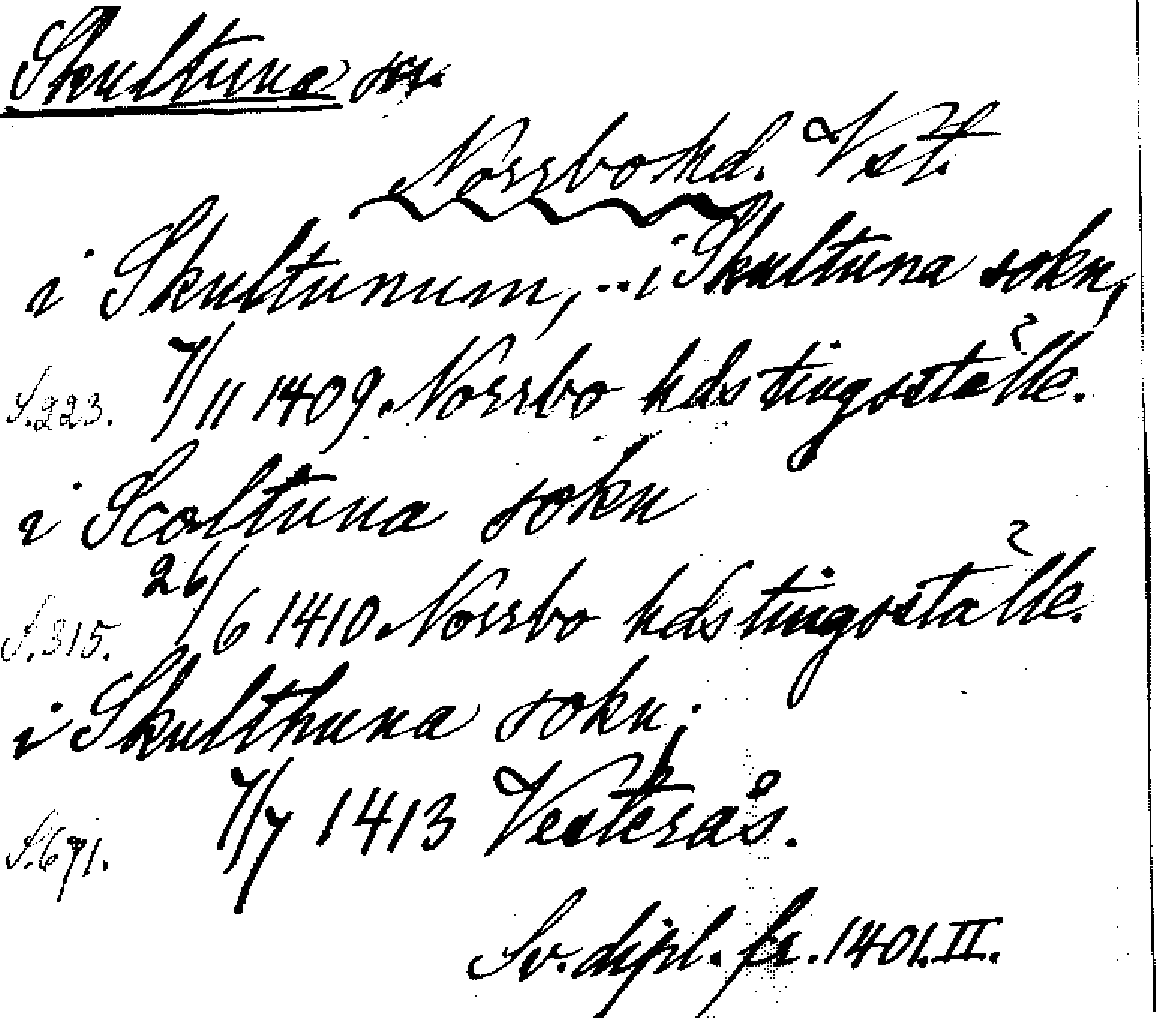 Skultuna sn.
Norrbo hd. Vst.
i Skultunum, .. i Skultuna sokn,
S. 223. 7/11 1409. Norrbo hds tingsställe.
i Scoltuna sokn
S. 315. 26/6 1410. Norrbo hds tingsställe.
i Skulthuna sokn;
S. 671. 7/7 1413 Vesterås.
Sv. dipl. fr. 1401. II.